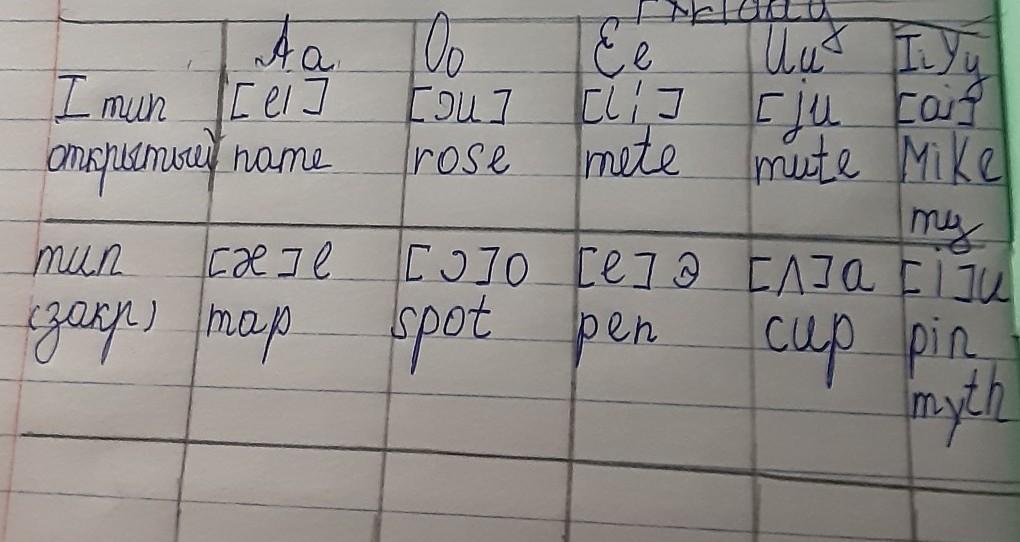 England
Aa Oo Ee Uu Ii Yy
I тип [ei] [ɔu] [i;] [ju [ai]
открытый name rose mete mute Mike
my
тип [æ] e [ɔ] o [e] э [ʌ] a [i] и
(закр) map spot pen cup pin
myth